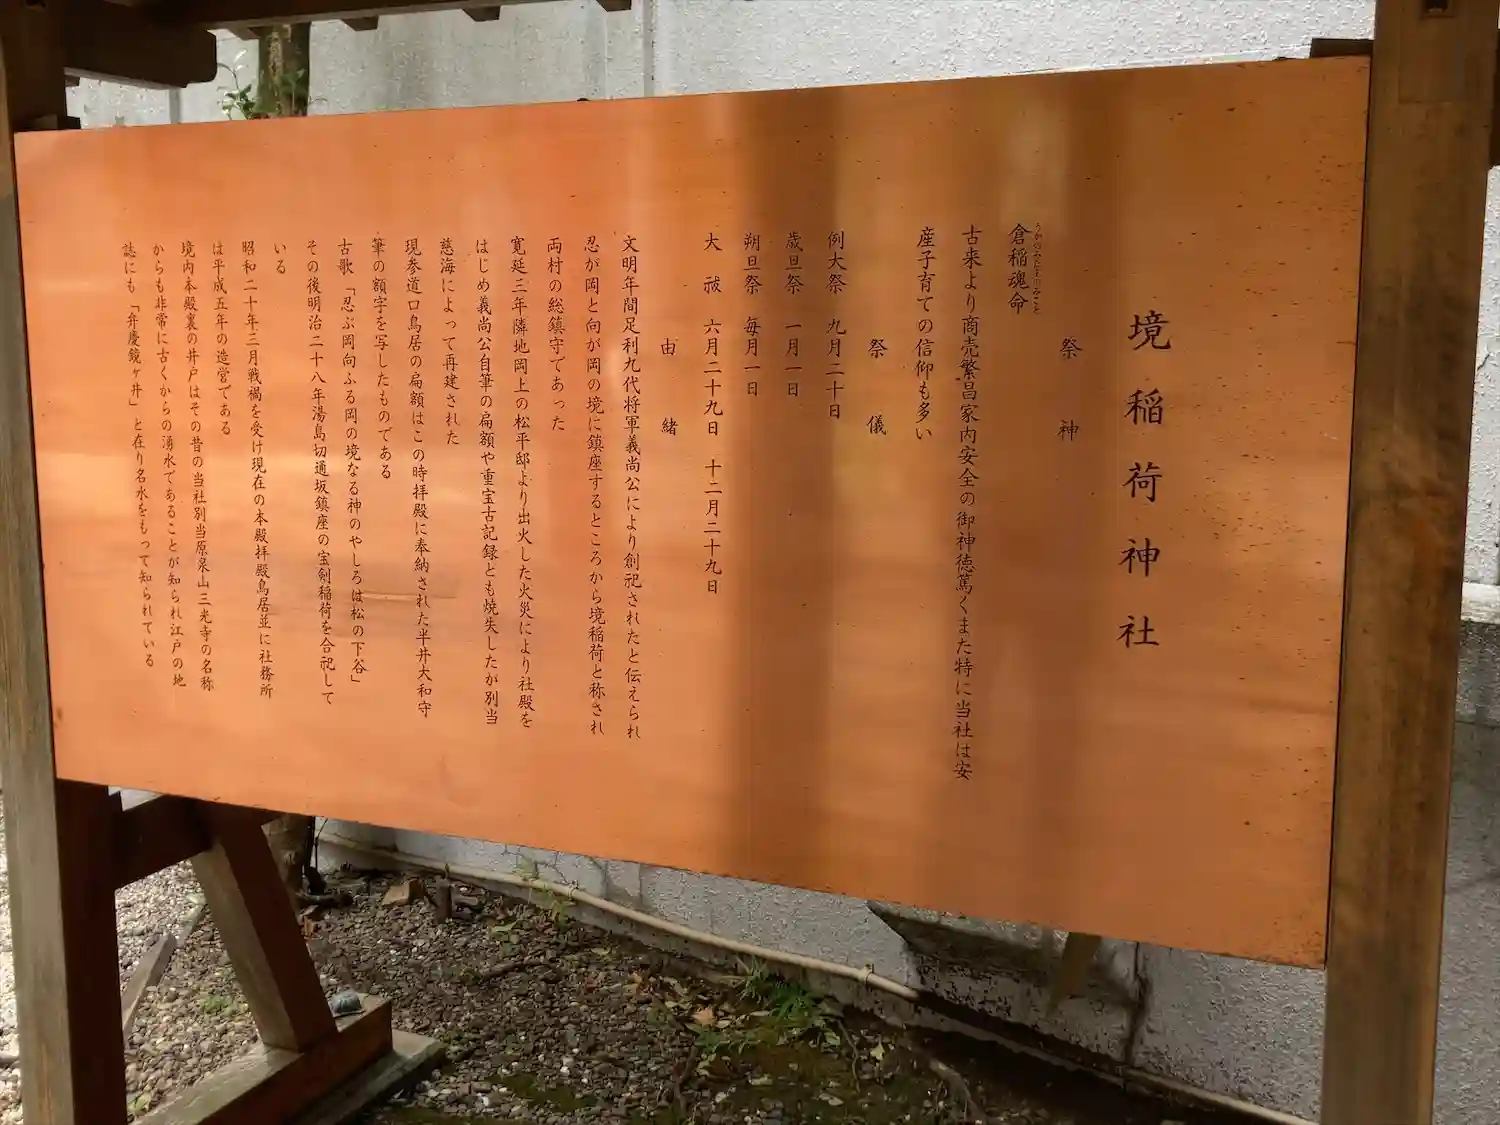 境稲荷神社
祭神
うかのみたまのみこと
倉稲魂命
古来より商売繁昌家内安全の御神徳篤くまた特に当社は安
産子育ての信仰も多い
祭儀
例大祭 九月二十日
歳旦祭 一月一日
朔旦祭 毎月一日
大祓 六月二十九日 十二月二十九日
由緒
文明年間足利九代将軍義尚公により創祀されたと伝えられ
忍が岡と向が岡の境に鎮座するところから境稲荷と称され
両村の総鎮守であった
寛延三年隣地岡上の松平邸より出火した火災により社殿を
はじめ義尚公自筆の扁額や重宝古記録とも焼失したが別当
慈海によって再建された
現参道口鳥居の扁額はこの時拝殿に奉納された半井大和守
筆の額字を写したものである
古歌「忍ぶ岡向ふる岡の境なる神のやしろは松の下谷」
その後明治二十八年湯島切通坂鎮座の宝剣稲荷を合祀して
いる
昭和二十年三月戦禍を受け現在の本殿拝殿鳥居並に社務所
は平成五年の造営である
境内本殿裏の井戸はその昔の当社別当原泉山三光寺の名称
からも非常に古くからの湧水であることが知られ江戸の地
誌にも「弁慶鏡ヶ井」と在り名水をもって知られている